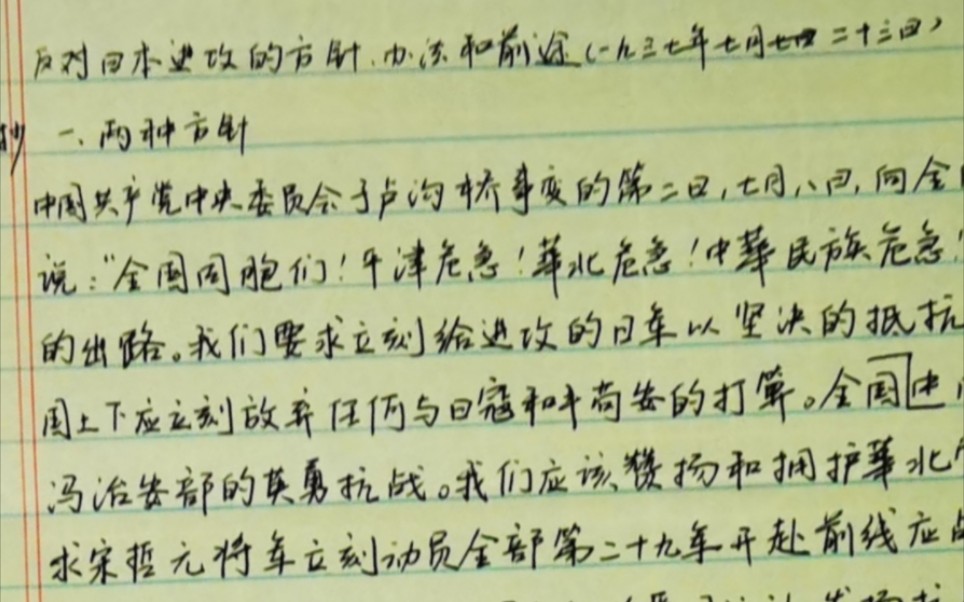 反对日本进攻的方针、办法和前途(一九三七年七月二十三日)
一、两种方针
中国共产党中央委员会于卢沟桥事变的第二日,七月八日,向全
说:"全国同胞们!平津危急!華北危急!中華民族危急!
的出路。我们要求立刻给进攻的日军以坚决的抵抗
国上下应立刻放弃任何与日寇和平苟安的打算。全国
冯治安部的英勇抗战。我们应该赞扬和拥护華北
求宋哲元将军立刻动员全部第二十九军开赴前线应